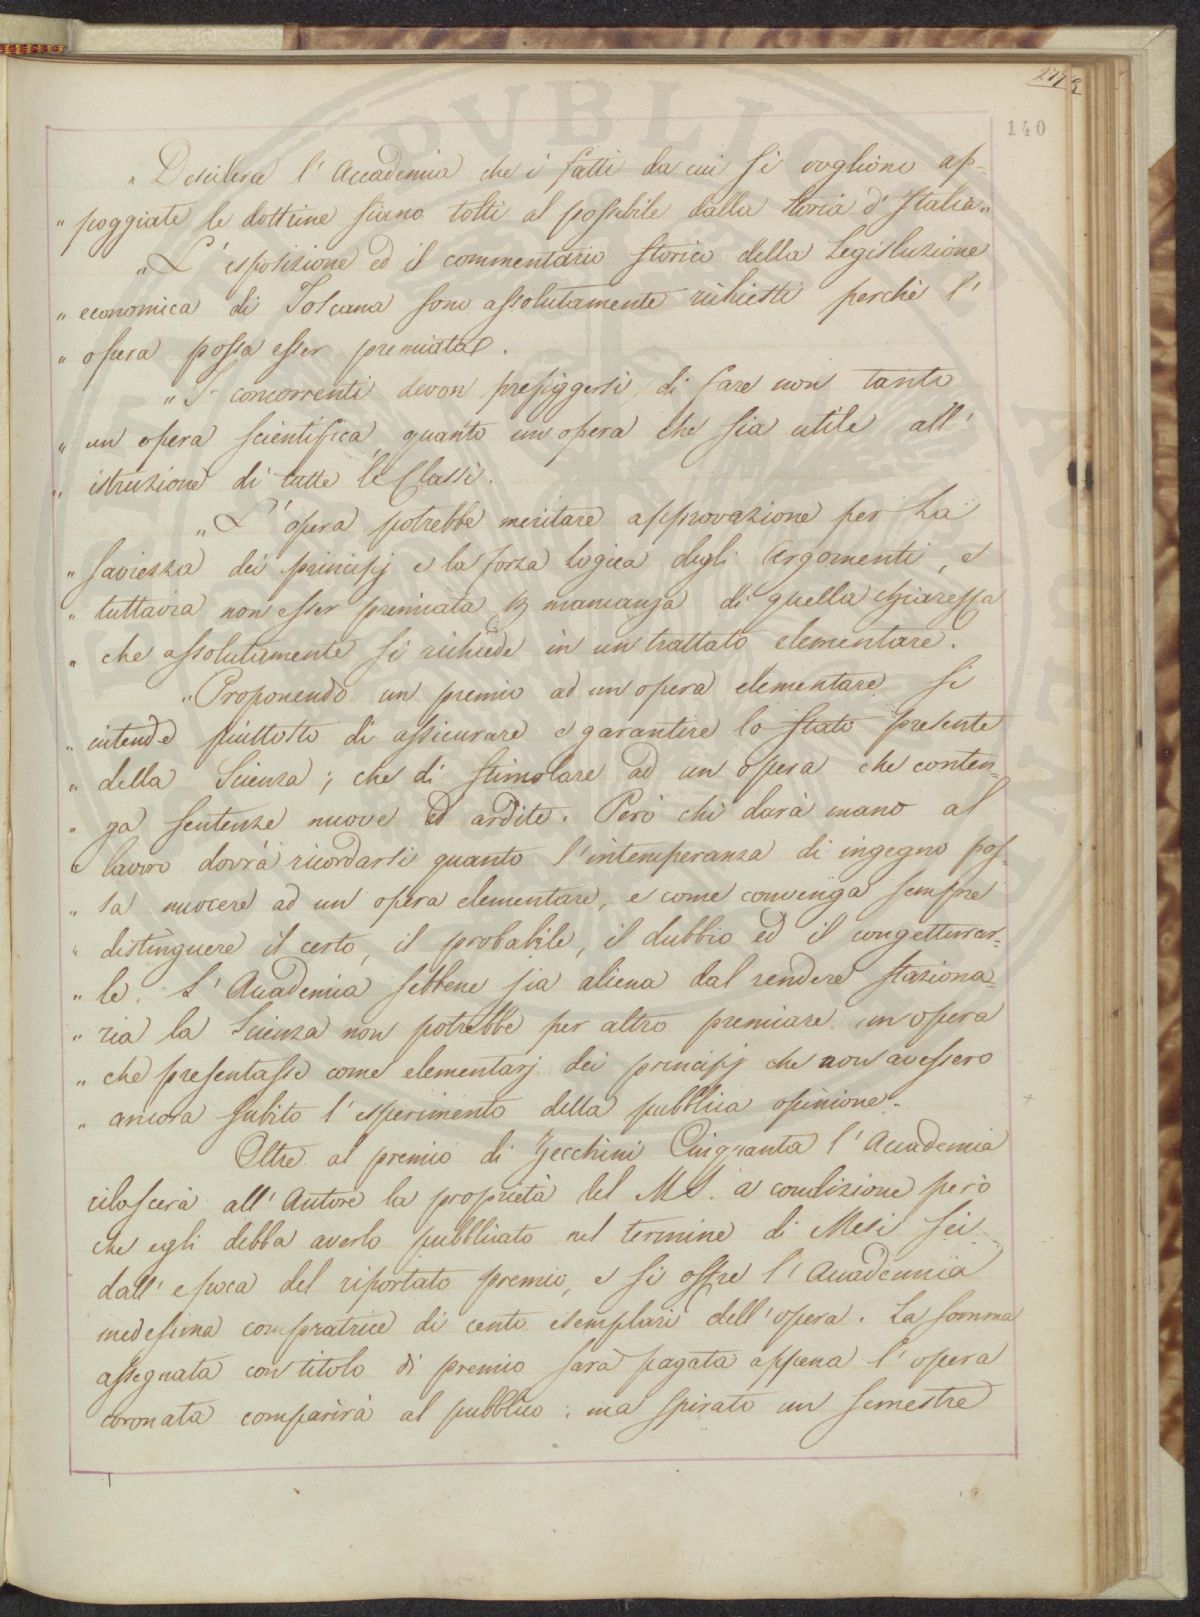 273
140
„ Desidera l' Accademia che i fatti da cui si vogliono ap-
„ poggiate le dottrine siano tolti al possibile dalla Storia d' Italia„
„ L' esposizione ed il commentario storico della Legislazione
„ economica di Toscana sono assolutamente richiesti perchè l'
„ opera possa esser premiata.
„ I concorrenti devon prefiggersi di fare non tanto
„ un opera scientifica, quanto un opera che sia utile all'
„ istruzione di tutte le Classi.
„ L' opera potrebbe meritare approvazione per La
„ saviezza dei principj e la forza Logica degli Argomenti, e
„ tuttavia non esser premiata p mancanza di quella chiarezza
„ che assolutamente si richiede in un trattato elementare.
„ Proponendo un premio ad un opera elementare si
„ intende piuttosto di assicurare e garantire lo stato presente
„ della Scienza; che di stimolare ad un opera che conten-
„ ga sentenze nuove ed ardite. Però chi darà mano al
„ lavoro dovrà ricordarsi quanto l' intemperanza di ingegno pos-
„ sa nuocere ad un opera elementare, e come convenga sempre
„ distinguere il certo, il probabile, il dubbio ed il congetturar-
„ le. L' Accademia sebbene sia aliena dal rendere staziona-
„ ria la Scienza non potrebbe per altro premiare un opera
„ che presentasse come elementarj dei principj che non avessero
„ ancora subito l' esperimento della pubblica opinione„
Oltre al premio di Zecchini Cinquanta l' Accademia
rilascerà all' Autore la proprietà del MS. a condizione però
che egli debba averlo pubblicato nel termine di Mesi sei
dall' epoca del riportato premio, e si offre l' Accademia
medesima compratrice di cento esemplari dell' opera. La somma
assegnata con titolo di premio sarà pagata appena l' opera
coronata comparirà al pubblico; ma spirato un semestre